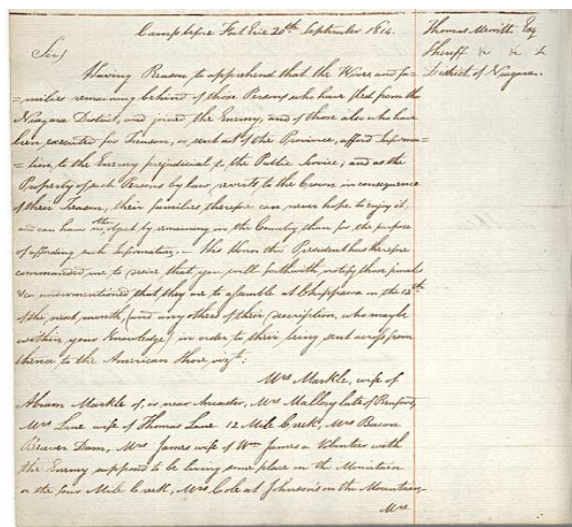 Camp before Fort Erie 20th September 1814.
Thomas Merritt Esq
Sheriff &c &c &c
District of Niagara.
Sir/
Having Reason to apprehend that the Wives and fa-
=milies remaining behind of those Persons who have fled from the
Niagara District, and joined the Enemy, and of those also who have
been executed for Treason, or sent out of the Province, afford Informa-
=tion to the Enemy prejudicial to the Public Service; and as the
Property of such Persons by law reverts to the Crown in consequence
of their Treason, their families therefore can never hope to enjoy it,
and can have no other object by remaining in the Country than for the purpose
of affording such Information. – His Honor the President has therefore
commanded me to desire that you will forthwith notify those females
&c undermentioned that they are to assemble at Chippawa on the 12th
of the next month, (and any others of their description, who may be
within your Knowledge) in order to their being sent across from
thence to the American Shore, vizt:
Mrs Markle, wife of
Abram Markle of, or near Ancaster, Mrs Mallory late of Burford,
Mrs Lane wife of Thomas Lane 12 Mile Creek, Mrs Bacon
Beaver Dam, Mrs James wife of Wm James a Volunteer with
the Enemy supposed to be living some place on the Mountain
or the four Mile Creek, Mrs Cole at Johnson's on the Mountain,
Mrs